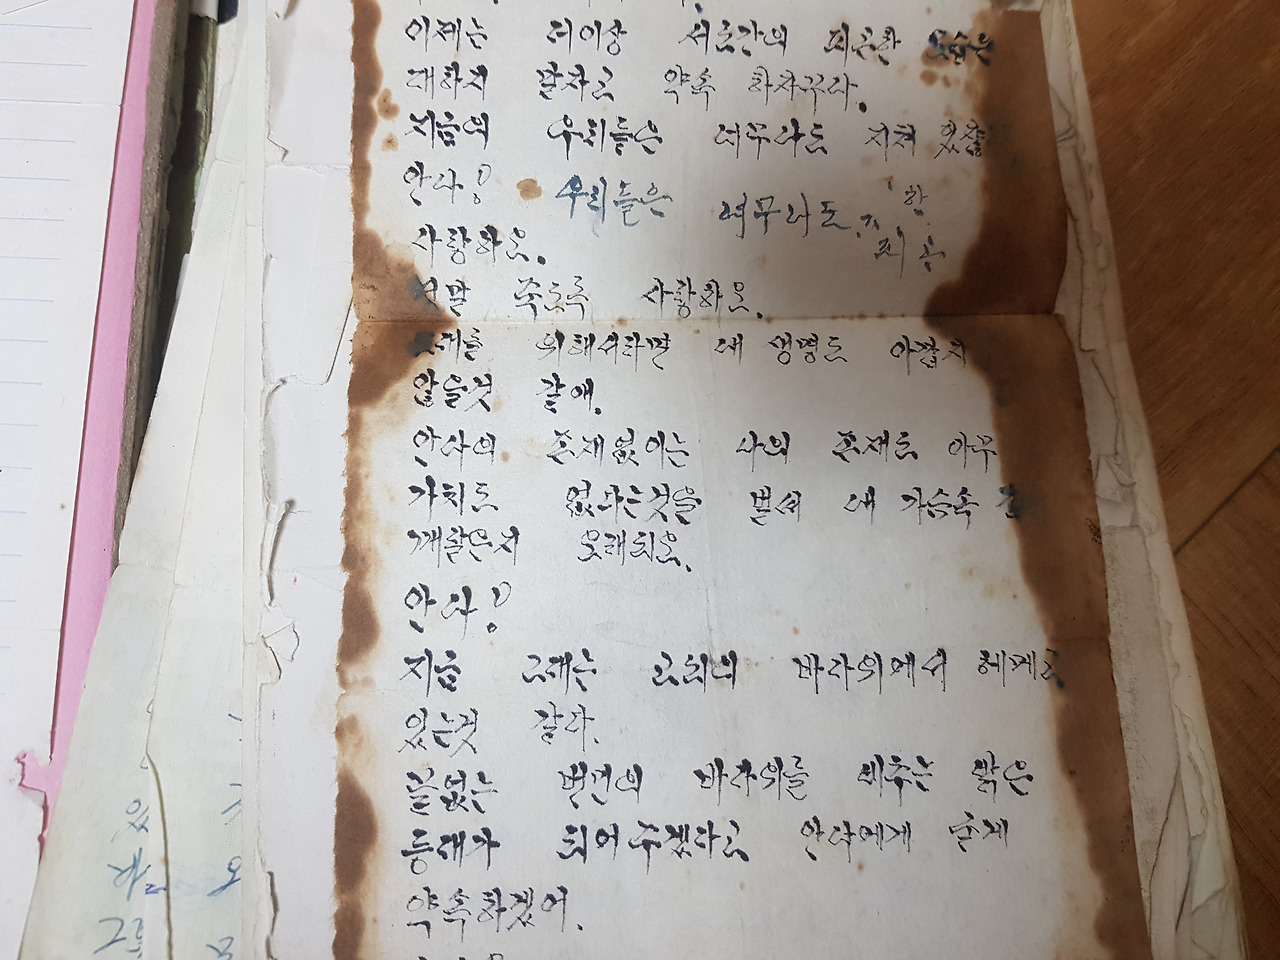 이제는 더이상 서로간의 피곤한 모습는
대하지 말자고 약속 하자꾸나.
지금의 우리들은 너무나도 지쳐 있잖
안나!
우리들은 너무나도 지
사랑하오.
정말 죽도록 사랑하오.
그대를 위해서라면 내 생명도 아깝지
않을것 같애.
안나의 존재없이는 나의 존재도 아무
가치도 없다는것을 벌써 내 가슴속
깨달은지 오래되오.
안나!
지금 그대는 고뇌의 바다위에서 헤메고
있는것 같다.
끝없는 번민의 바다위를 비추는 밝은
등대가 되어 주겠다고 안나에게 굳게
약속하겠어.